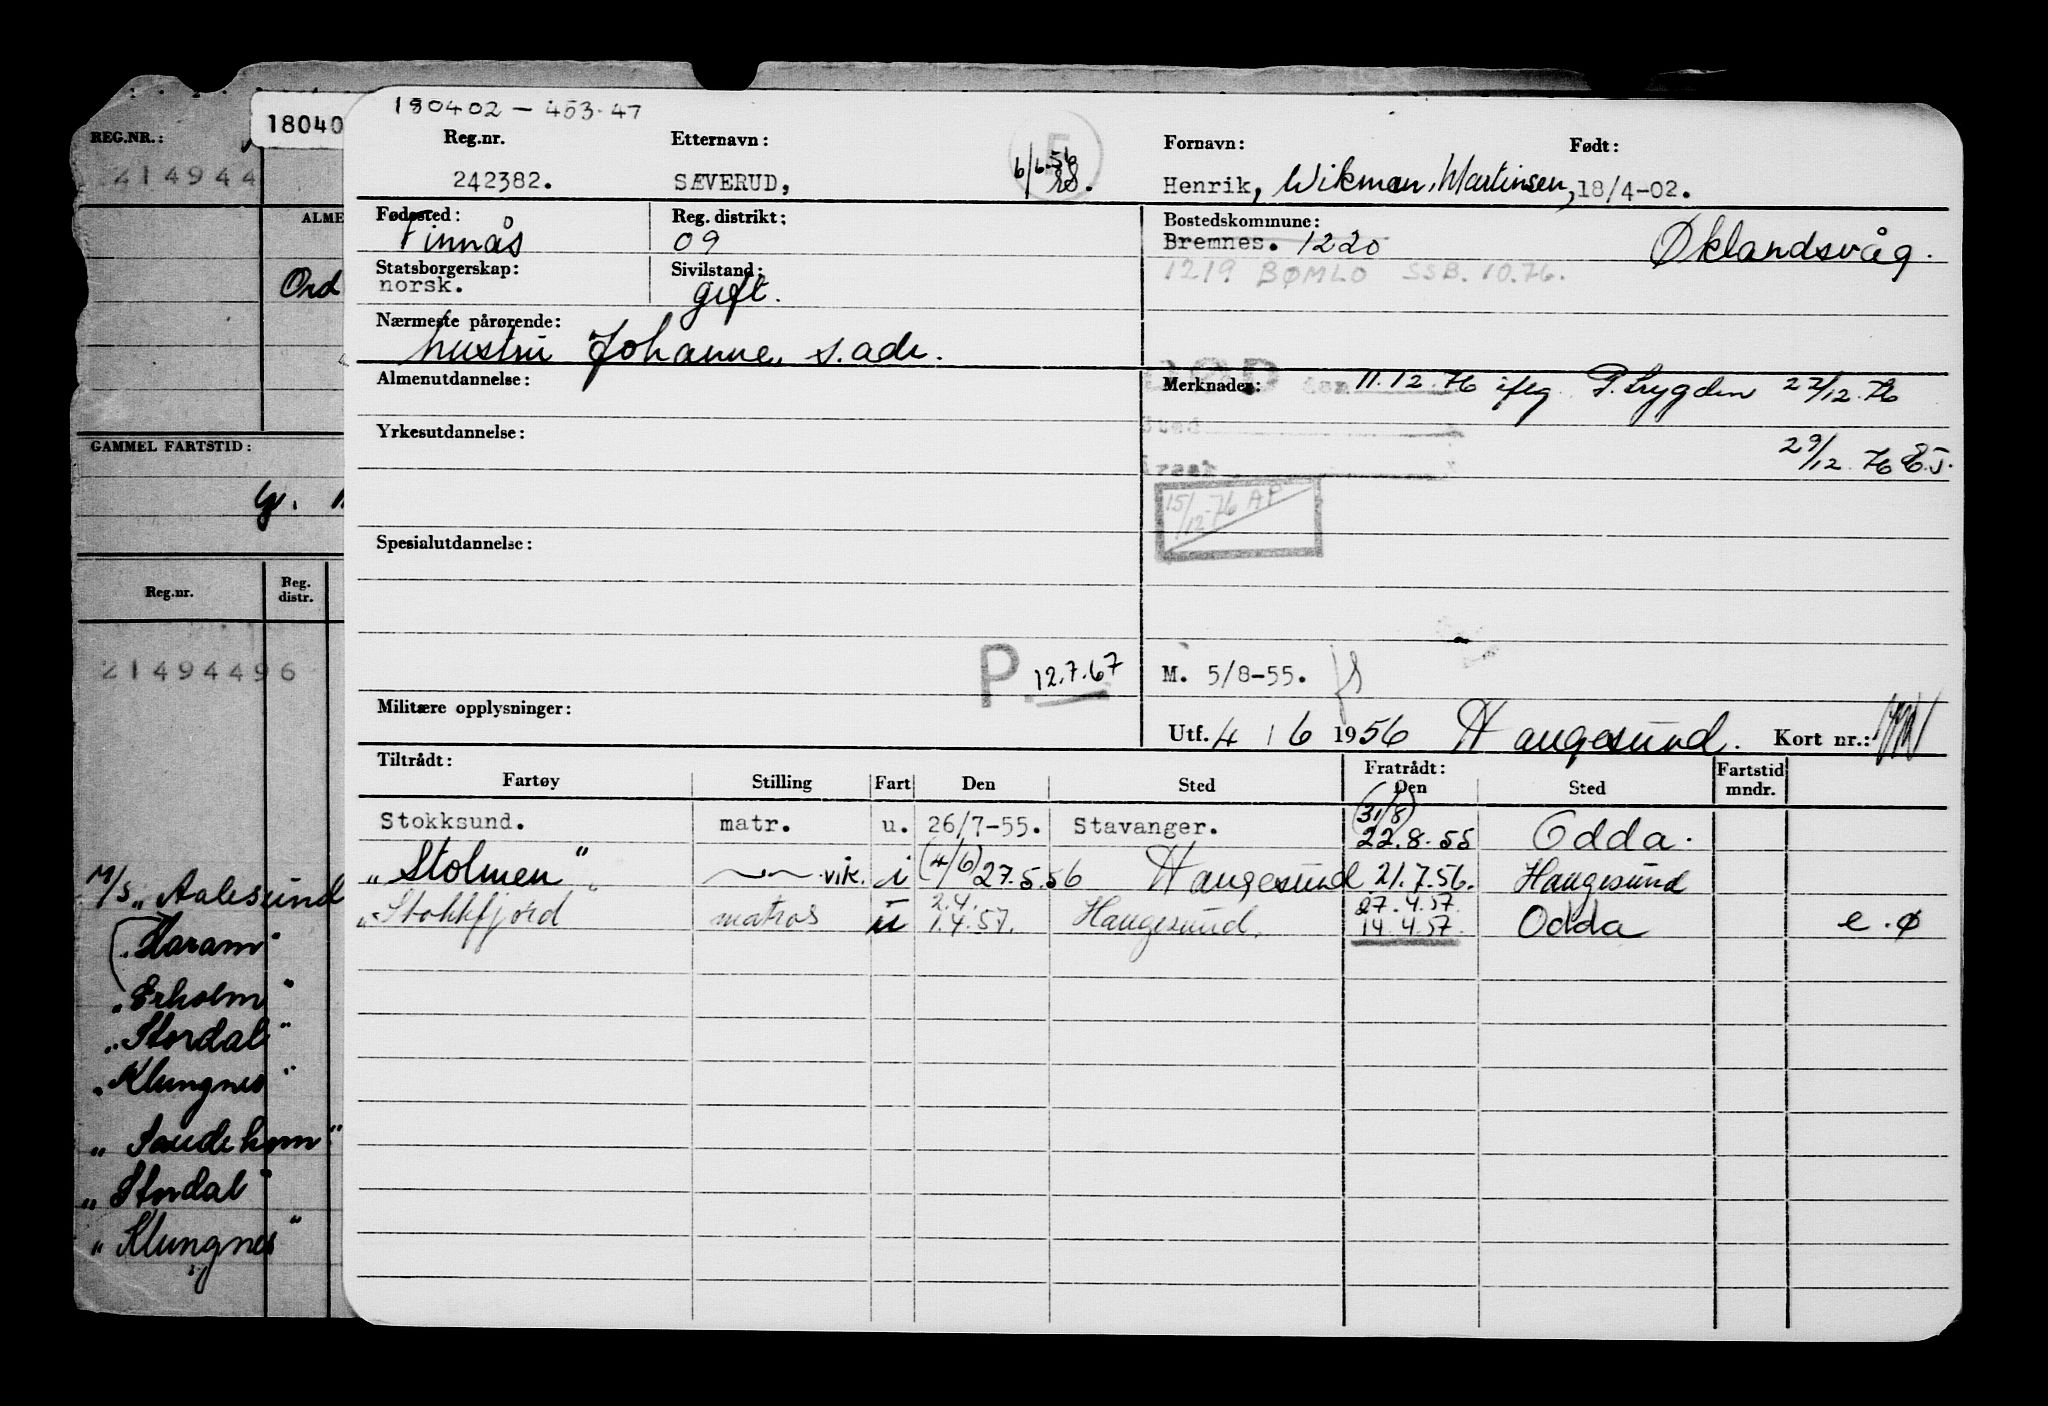 180402 – 453.47
REG.NR.: 18040 Reg.nr. Etternavn: Fornavn: Født:
214944 242382. SÆVERUD, 6/6.56 Henrik, Wikman, Martinsen, 18/4-02.
ALME Fødested: Reg. distrikt: Bostedskommune:
Finnås 09 Bremnes. 1220 Øklandsvåg.
Statsborgerskap: Sivilstand: 1219 BØMLO SSB. 10.76.
Ord norsk. gift.
Nærmeste pårørende:
hustru Johanne, s. adr.
Almenutdannelse: Merknader: DØD den 11.12.76 ifлg. P. trygden 22/12.76
Yrkesutdannelse: Sted
GAMMEL FARTSTID: 29/12.76 E.J.
Årsak
15/12-76 AP
Spesialutdannelse:
Reg.nr. Reg. distr.
21494496 P. 12.7.67 M. 5/8-55.
Militære opplysninger:
Utf. 4 / 6 1956 Haugesund. Kort nr.:
Tiltrådt: Fratrådt: Fartstid
Fartøy Stilling Fart Den Sted Den Sted mndr.
(31/8)
Stokksund. matr. u. 26/7-55. Stavanger. 22.8.55 Odda.
"Stolmen" vik. i (4/6) 27.5.56 Haugesund 21.7.56. Haugesund
2.4. 27.4.57.
"Stokkfjord matros u 1.4.57. Haugesund. 14.4.57. Odda e.ø
M/S "Aalesund
"Haram"
"Erholm"
"Stordal"
"Klungnes"
"Saudehorn"
"Stordal"
"Klungnes"